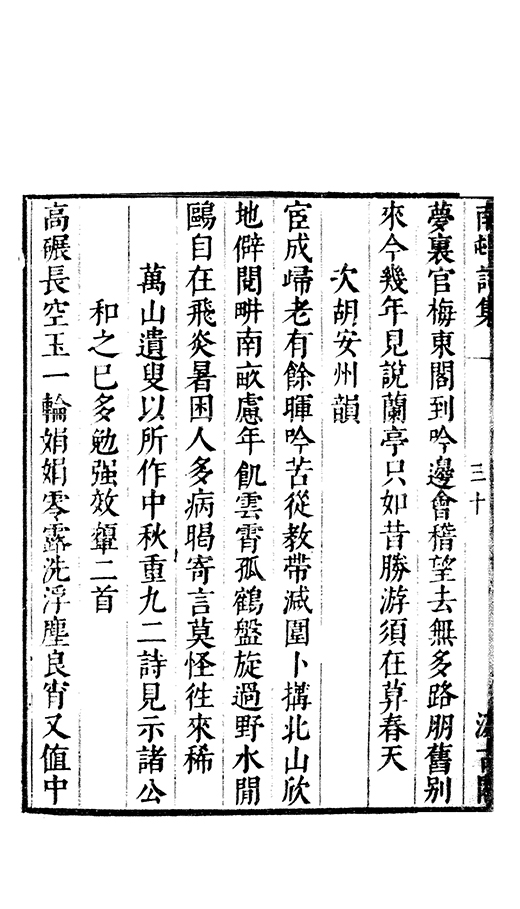 夢裏官梅東閣到吟邊會稽望去無多路朋舊别
來今幾年見說蘭亭只如昔勝游須在算春天
次胡安州韻
宦成歸老有餘暉吟苦從教帶減圍卜搆北山欣
地僻閱畊南畝慮年飢雲霄孤鶴盤旋過野水閒
鷗自在飛炎暑困人多病暍寄言莫怪徃來稀
萬山遺叟以所作中秋重九二詩見示諸公
和之已多勉强效顰二首
高碾長空玉一輪娟娟零露洗浮塵良宵又值中
三十